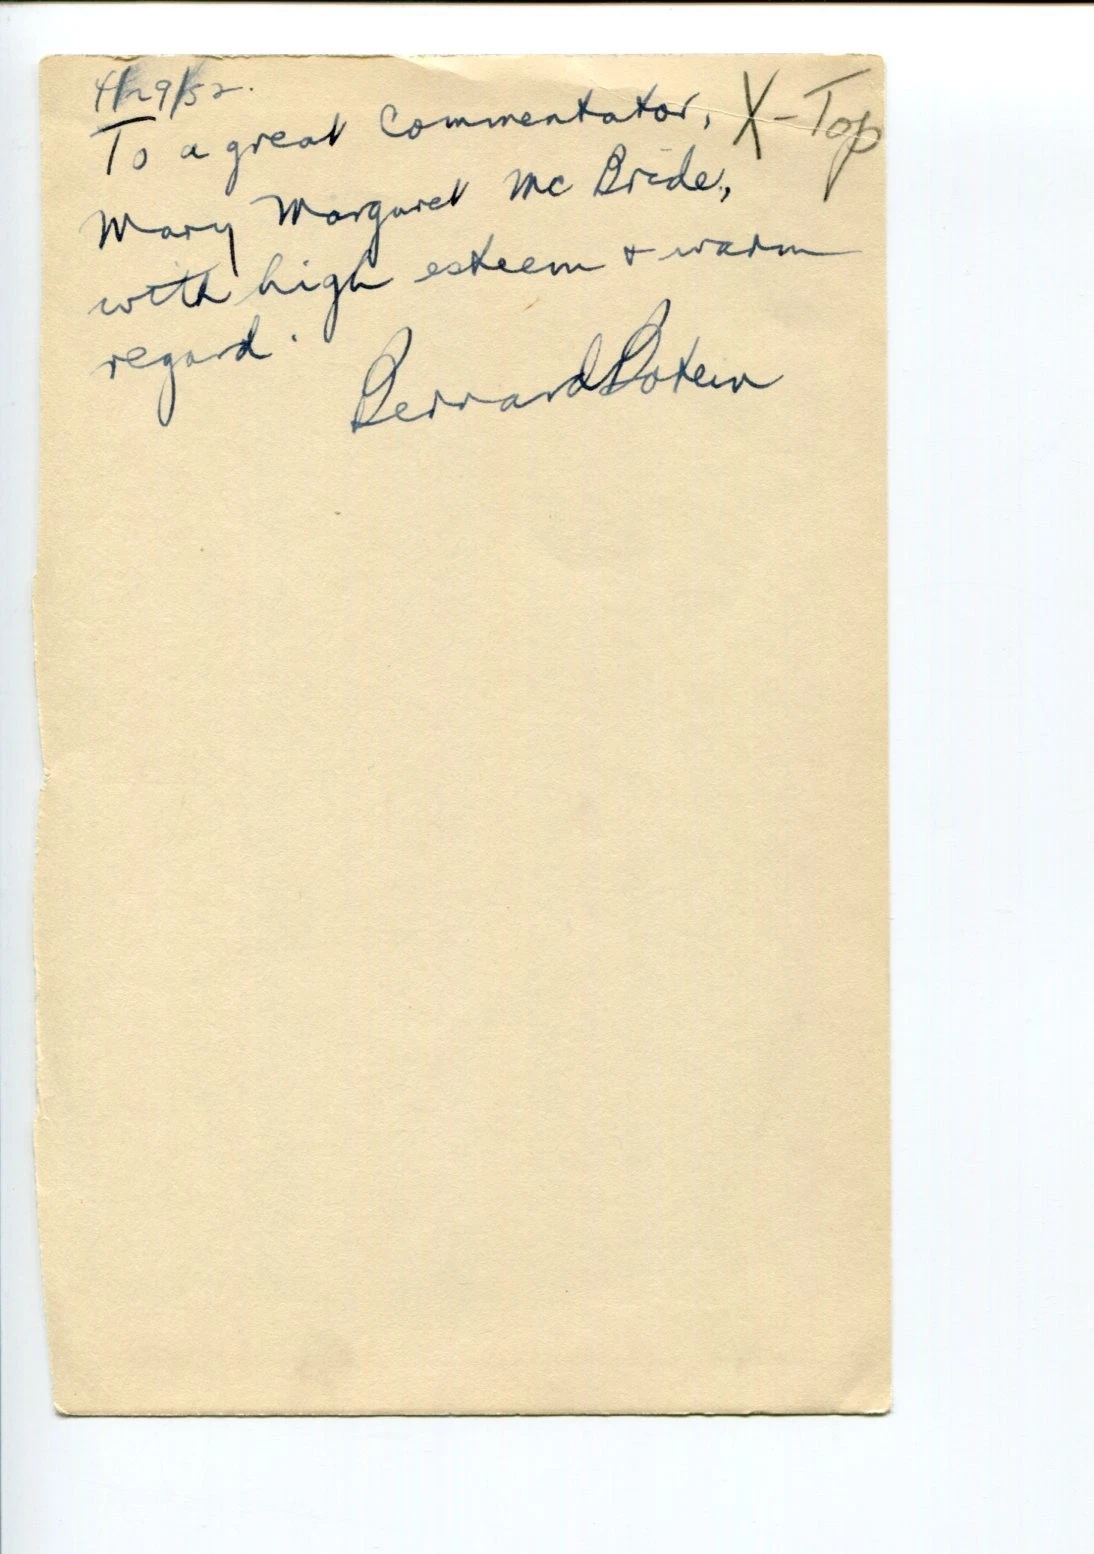 4/29/52.
To a great commentator, X-Top
Mary Margaret McBride,
with high esteem + warm
regard.
Bernard Botein